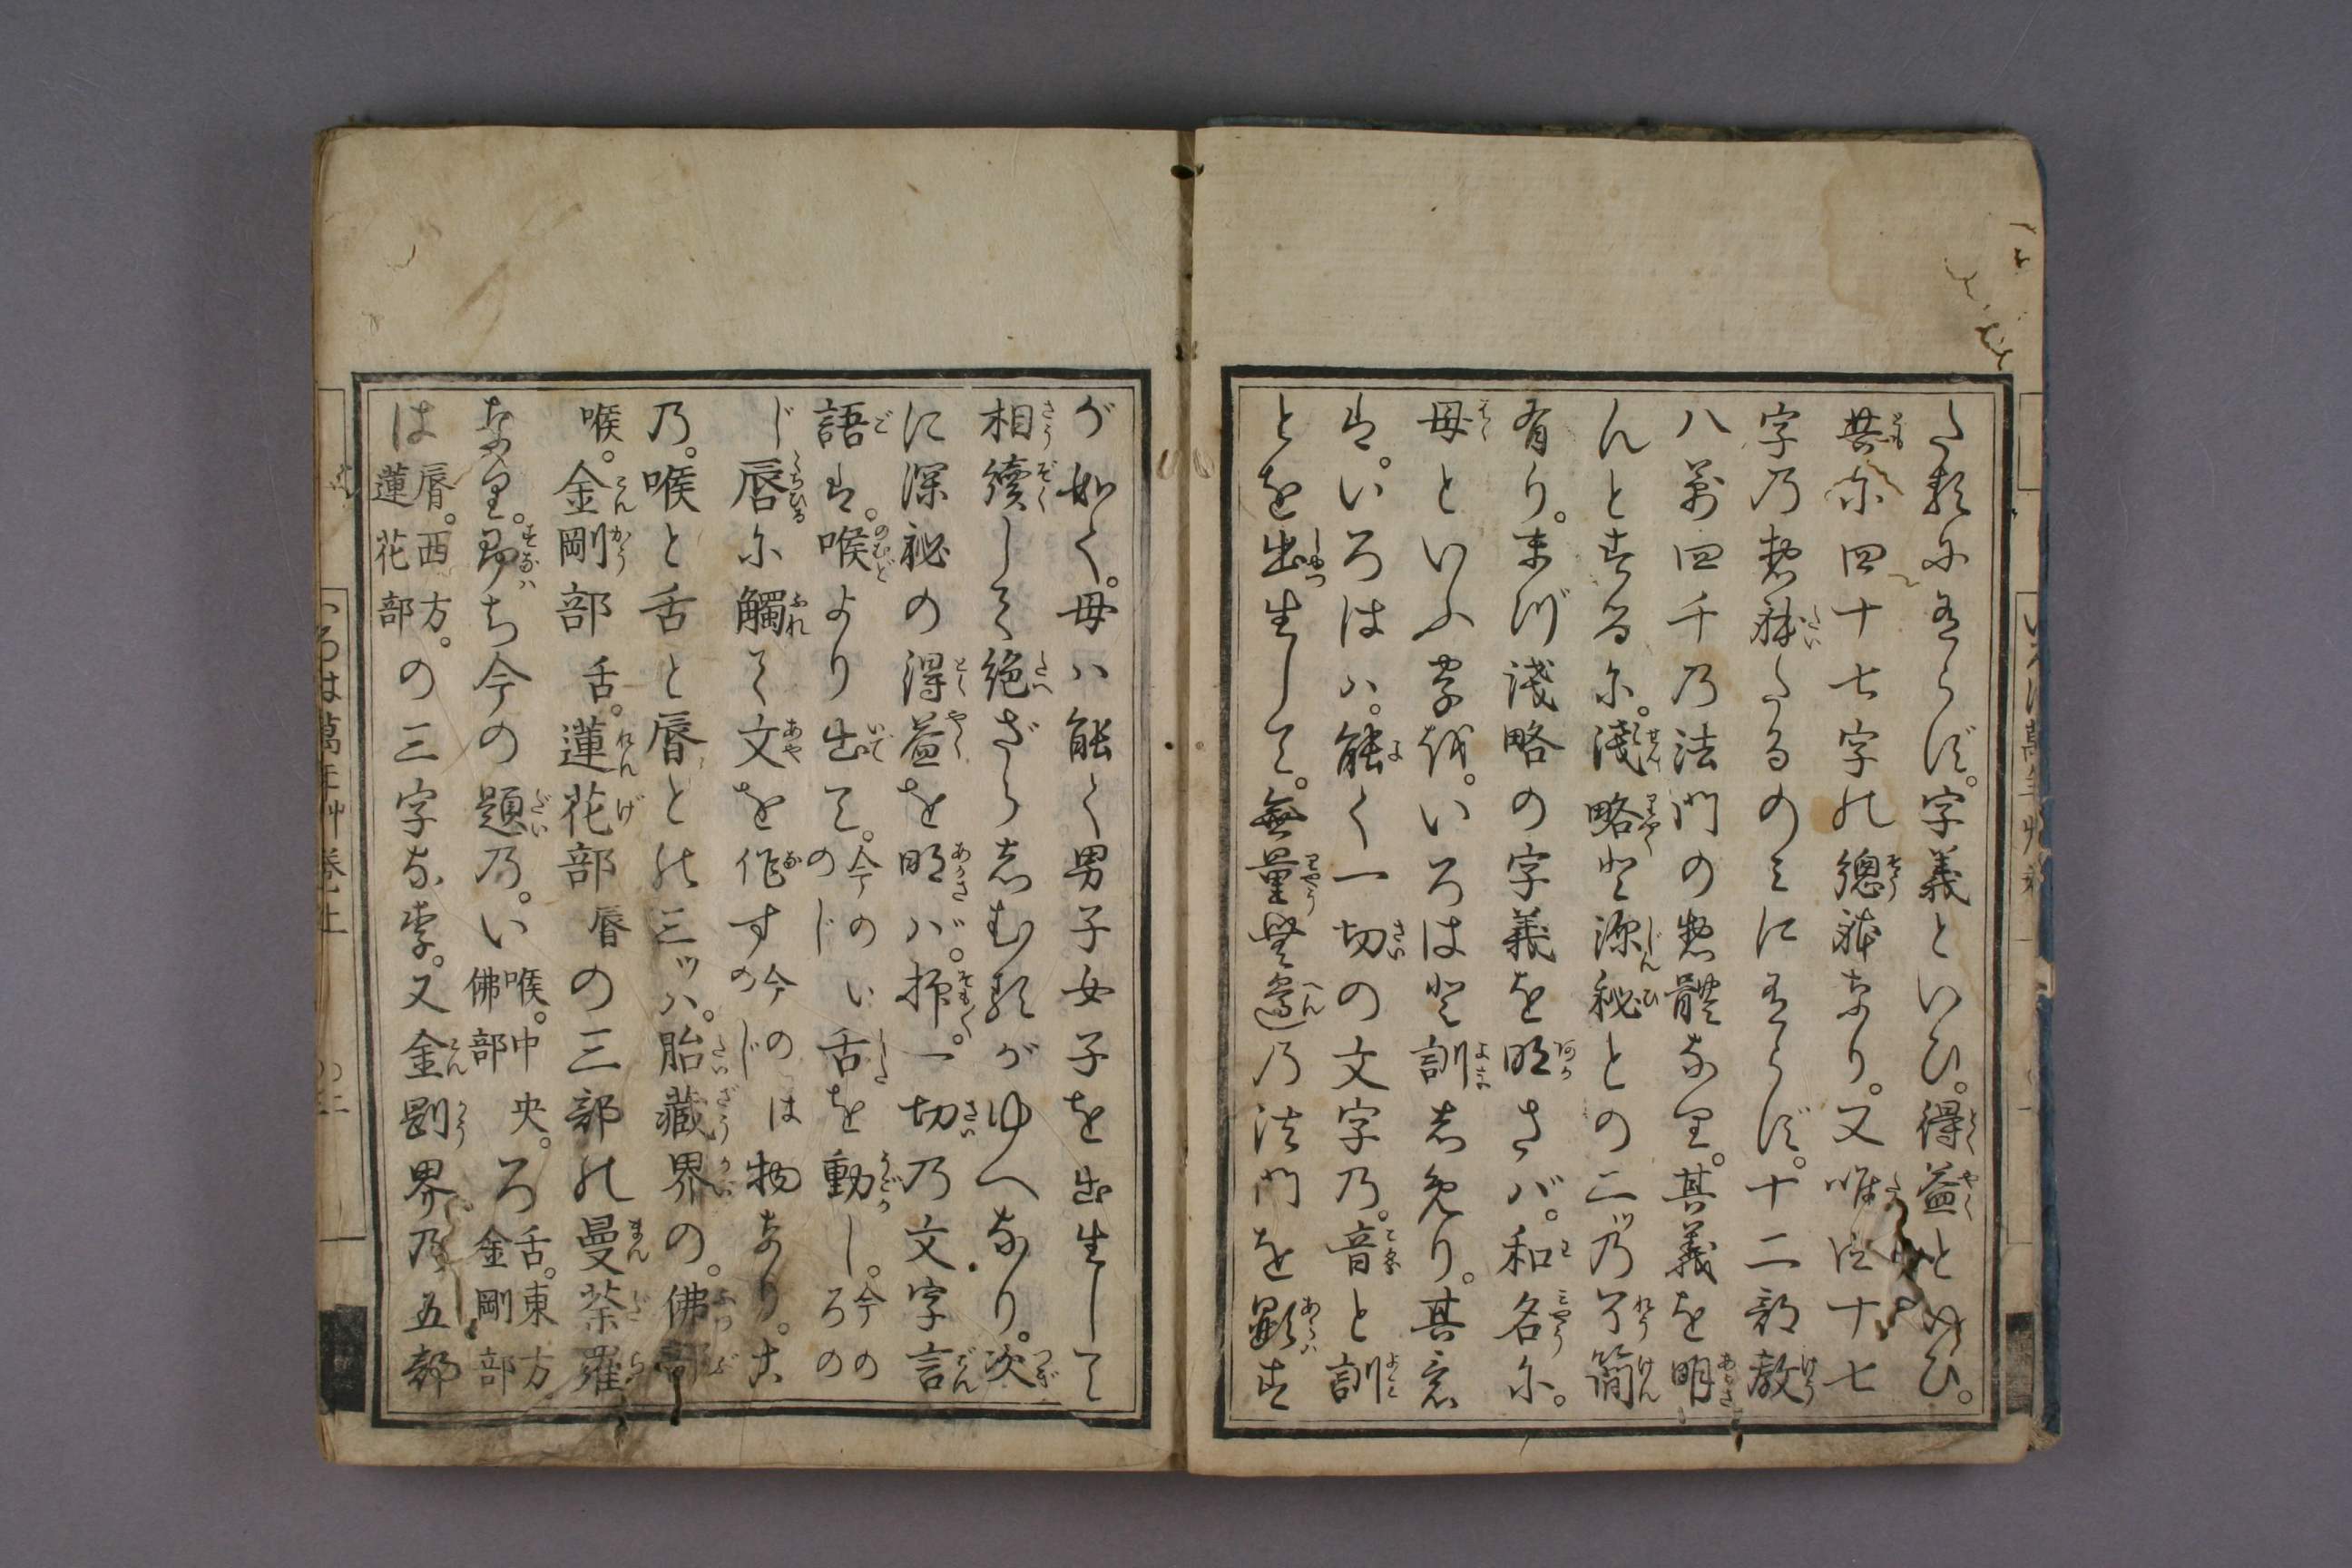 た類にあらず。字義といひ。得益といひ。
共に四十七字の總躰なり。又唯四十七
字乃惣躰たるのミにあらず。十二部教
八萬四千乃法門の惣體なり。其義を明
んとするに。淺略と深秘との二ツ乃了簡
有り。まづ淺略の字義を明さバ。和名に。
母といふ字を。いろはと訓しめり。其意
は。いろはハ。能く一切の文字乃。音と訓
とを出生して。無量無邊乃法門を顕す
が如く。母ハ能く男子女子を出生して
相續して絶ざらしむるがゆへなり。次
に深秘の得益を明さバ。抑。一切乃文字言
語は。喉より出て。今のいのじ舌を動し。今のろの
じ唇に觸て文を作す今のはのじ物なり。さ
乃。喉と舌と唇との三ッハ。胎藏界の。佛部
喉。金剛部舌。蓮花部唇の三部の曼荼羅
なり。即ち今の題乃。い喉。中央。佛部ろ舌。東方金剛部
は唇。西方。蓮花部の三字なり。又金剛界乃五部